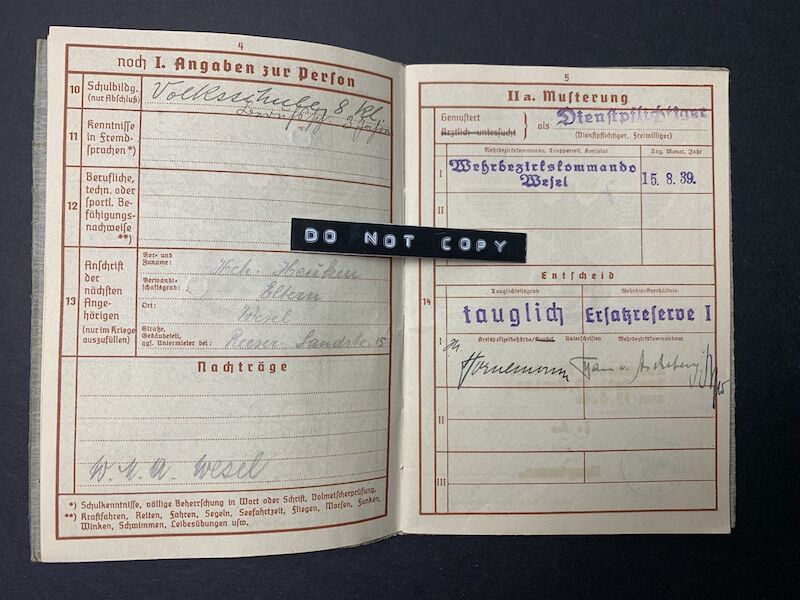 4
noch I. Angaben zur Person
10 Schulbildg. (nur Abschluß)
Volksschule 8 Kl.
11 Kenntnisse in Fremd-
sprachen *)
12 Berufliche,
techn. oder
sportl. Be-
fähigungs-
nachweise
**)
13 Anschrift
der
nächsten
Ange-
hörigen
(nur im Kriege
auszufüllen)
Vor- und
Zuname:
Hch.
Verwandt-
schaftsgrad:
Eltern
Ort:
Wesel
Straße,
Gebäudeteil,
ggf. Untermieter bei:
Reeser Landstr. 15
Nachträge
W. M. A. Wesel
*) Schulkenntnisse, völlige Beherrschung in Wort oder Schrift, Dolmetscherprüfung.
**) Kraftfahren, Reiten, Fahren, Segeln, Seefahrtzeit, Fliegen, Morsen, Funken,
Winken, Schwimmen, Leibesübungen usw.
DO NOT COPY
5
II a. Musterung
Gemustert
Ärztlich untersucht
als Dienstpflichtiger
(Dienstpflichtiger, Freiwilliger)
Wehrbezirkskommando, Truppenteil, Konsulat
Tag, Monat, Jahr
I Wehrbezirkskommando
Wesel
15. 8. 39.
II
Entscheid
14
Tauglichkeitsgrad
Wehrdienstverhältnis
tauglich
Ersatzreserve I
I
Kreispolizeibehörde/Konsul
Unterschriften
Wehrbezirkskommandeur
Hornemann
II
III